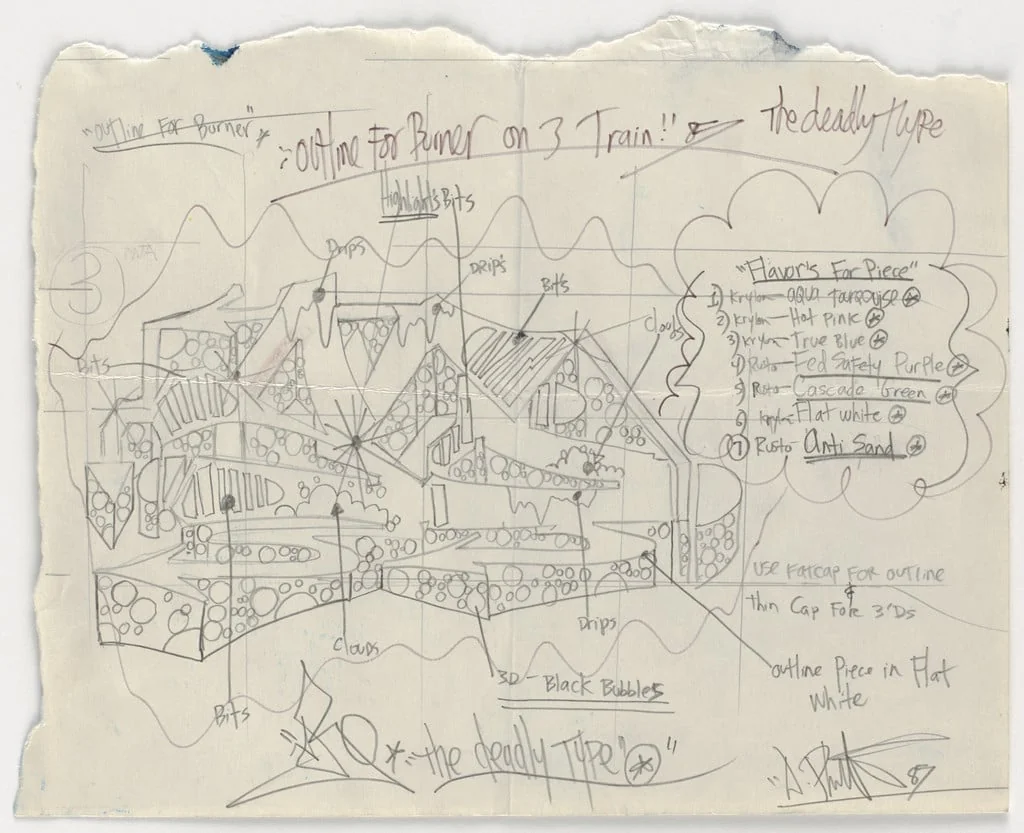 "outline For Burner"
outline For Burner on 3 Train!!
The deadly Type
Highlight's Bits
Drips
DRIP'S
Bits
Clouds
3
MTA
Bits
"Flavor's For Piece"
1) Krylon - aqua Turquoise
2) Krylon - Hot Pink
3) Krylon - True Blue
4) Rusto - Fed Safety Purple
5) Rusto - Cascade Green
6) Krylon - Flat white
7) Rusto - Anti Sand
USE FATCAP FOR OUTLINE
&
Thin Cap For 3'Ds
Drips
Clouds
3D - Black Bubbles
outline Piece in Flat
White
Bits
the deadly Type"
87